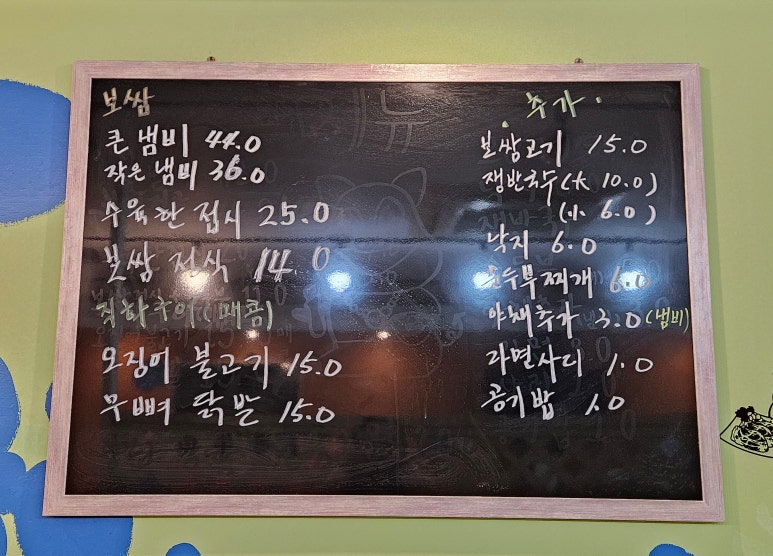 보쌈
큰 냄비 44.0
작은 냄비 36.0
수육 한 접시 25.0
보쌈 정식 14.0
(매콤)
오징어 불고기 15.0
무뼈 닭발 15.0
추가
보쌈고기 15.0
쟁반국수(大 10.0)
(小 6.0)
낙지 6.0
순두부찌개 6.0
야채추가 3.0 (냄비)
라면사리 1.0
공기밥 1.0